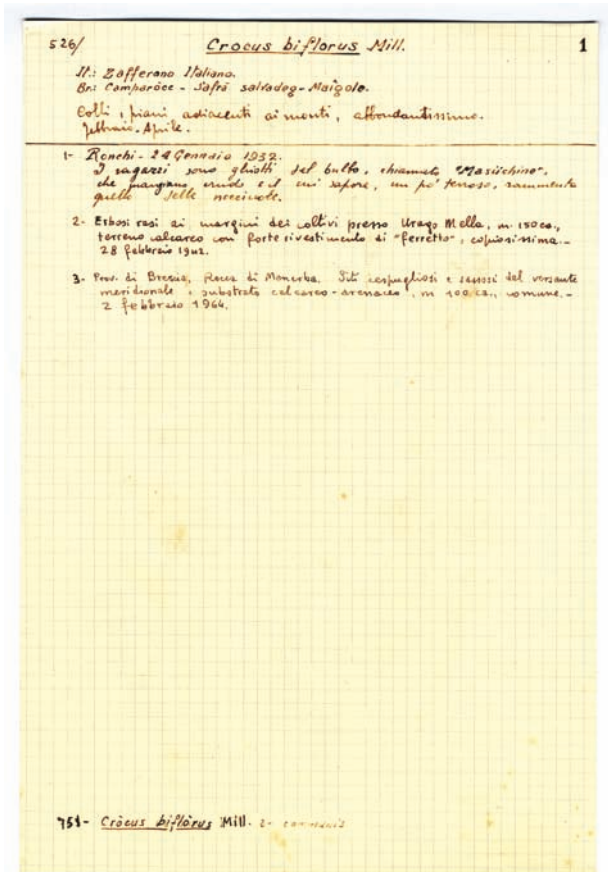 526/ Crocus biflorus Mill. 1
It.: Zafferano Italiano.
Br.: Camparöce - Safrà salvadeg - Maigole.
Colli, piani adiacenti ai monti, abbondantissimo.
Febbraio - Aprile.
1- Ronchi - 24 Gennaio 1932.
I ragazzi sono ghiotti del bulbo, chiamato "Masüchino",
che mangiano crudo e il cui sapore, un po' terroso, rammenta
quello delle nocciuole.
2- Erbosi rasi ai margini dei coltivi presso Urago Mella, m. 150 ca.,
terreno calcareo con forte rivestimento di "ferretto", copiosissima.-
28 febbraio 1942.
3- Prov. di Brescia, Rocca di Manerba. Siti cespugliosi e sassosi del versante
meridionale, substrato calcareo-arenaceo, m 100 ca., comune.-
2 febbraio 1964.
751- Cròcus biflòrus Mill. 2- communis